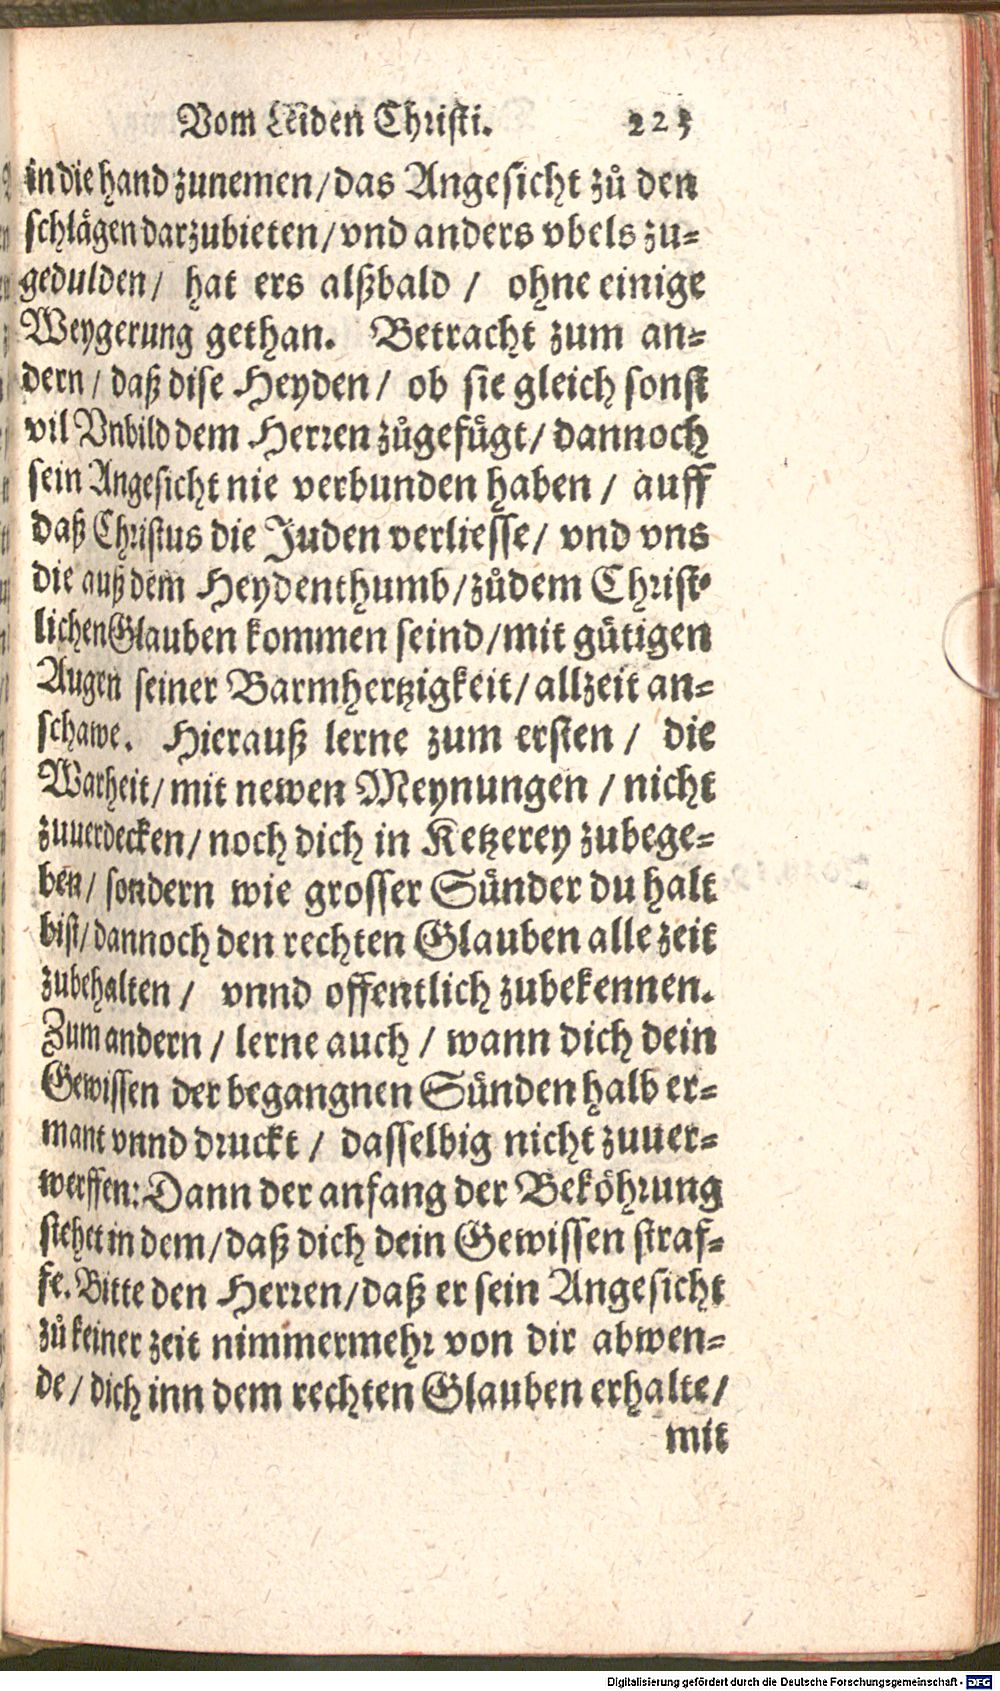 Vom Leiden Christi. 225
in die hand zunemen/das Angesicht zů den
schlägen darzubieten/vnd anders vbels zu-
gedulden/ hat ers alßbald / ohne einige
Weygerung gethan. Betracht zum an-
dern / daß dise Heyden/ ob sie gleich sonst
vil Vnbild dem Herren zůgefügt/ dannoch
sein Angesicht nie verbunden haben / auff
daß Christus die Juden verliesse/ vnd vns
die auß dem Heydenthumb/zůdem Christ-
lichen Glauben kommen seind/mit gütigen
Augen seiner Barmhertzigkeit/ allzeit an-
schawe. Hierauß lerne zum ersten / die
Warheit/ mit newen Meynungen / nicht
zuuerdecken/ noch dich in Ketzerey zubege-
ben/ sondern wie grosser Sünder du halt
bist/dannoch den rechten Glauben alle zeit
zubehalten / vnnd offentlich zubekennen.
Zum andern / lerne auch / wann dich dein
Gewissen der begangnen Sünden halb er-
mant vnnd druckt / dasselbig nicht zuuer-
werffen: Dann der anfang der Beköhrung
stehet in dem/daß dich dein Gewissen straf-
fe. Bitte den Herren/daß er sein Angesicht
zů keiner zeit nimmermehr von dir abwen-
de / dich inn dem rechten Glauben erhalte/
mit
Digitalisierung gefördert durch die Deutsche Forschungsgemeinschaft - DFG